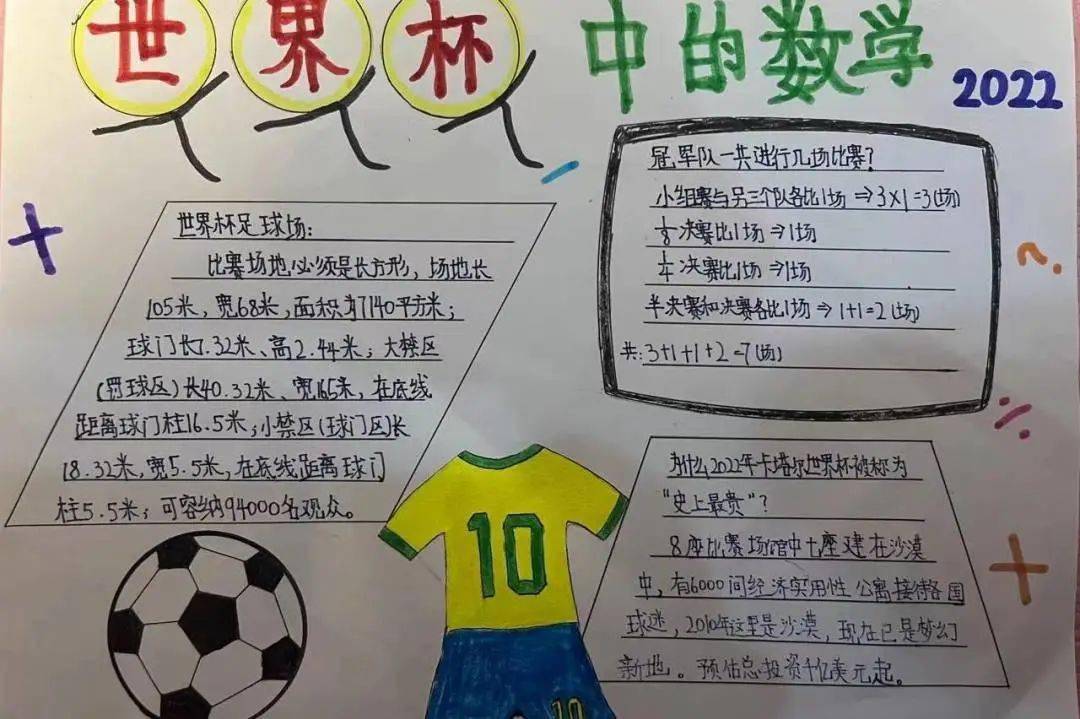 世界杯 中的数学 2022
世界杯足球场：
比赛场地必须是长方形，场地长
105米，宽68米，面积为7140平方米；
球门长7.32米、高2.44米；大禁区
(罚球区)长40.32米、宽16.5米，在底线
距离球门柱16.5米；小禁区(球门区)长
18.32米，宽5.5米，在底线距离球门
柱5.5米；可容纳94000名观众。
冠军队一共进行几场比赛？
小组赛与另三个队各比1场⇒3×1=3(场)
⅛决赛比1场⇒1场
¼决赛比1场⇒1场
半决赛和决赛各比1场⇒1+1=2(场)
共：3+1+1+2=7(场)
为什么2022年卡塔尔世界杯被称为
“史上最贵”？
8座比赛场馆中七座建在沙漠
中，有6000间经济实用性公寓接待各国
球迷，2010年这里是沙漠，现在已是梦幻
新地。预估总投资千亿美元起。
10
10